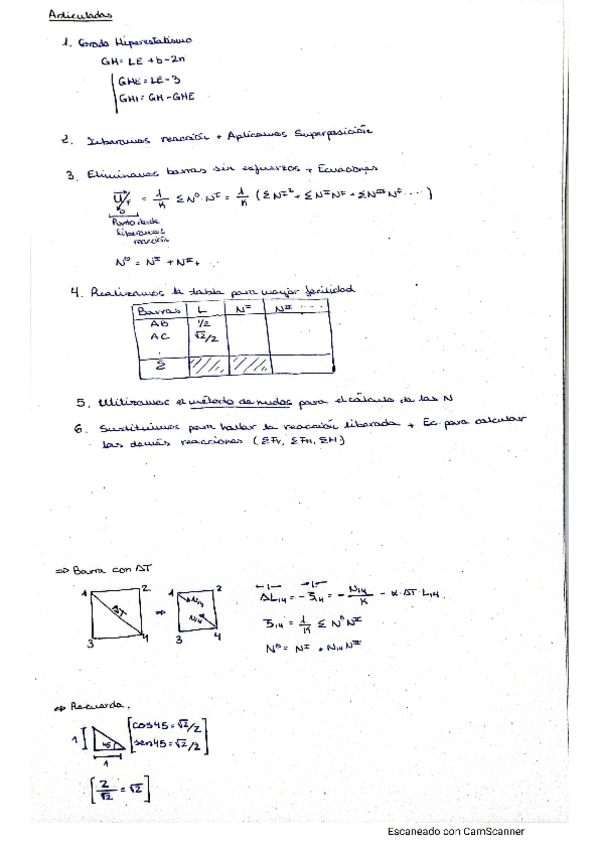 Articuladas
1. Grado Hiperestatismo
GH = LE + b - 2n
GHE = LE - 3
GHI = GH - GHE
2. Liberamos reacción + Aplicamos Superposición
3. Eliminamos barras sin esfuerzos + Ecuaciones
= 1/K Σ N⁰ · Nᴵ = 1/K (Σ Nᴵ² + Σ Nᴵᴵ Nᴵ + Σ Nᴵᴵᴵ Nᴵ ...)
Punto donde
liberamos
reacción
N⁰ = Nᴵ + Nᴵᴵ + ...
4. Realizamos la tabla para mayor facilidad
Barras L Nᴵ Nᴵᴵ ...
AB 1/2
AC √2/2
Σ
5. Utilizamos el método de nudos para el cálculo de las N
6. Sustituimos para hallar la reacción liberada + Ec. para calcular
las demás reacciones (ΣFv, ΣFH, ΣM)
⇒ Barra con ΔT
1 2 3 4 ΔT ⇒ 1 2 3 4 N14
ΔL14 = - δ14 = - N14/K - α · ΔT · L14
δ14 = 1/K Σ N⁰ Nᴵᴵ
N⁰ = Nᴵ + N14 Nᴵᴵ
⇒ Recuerda.
1 45 1
cos45 = √2/2
sen45 = √2/2
[2/√2 = √2]
Escaneado con CamScanner